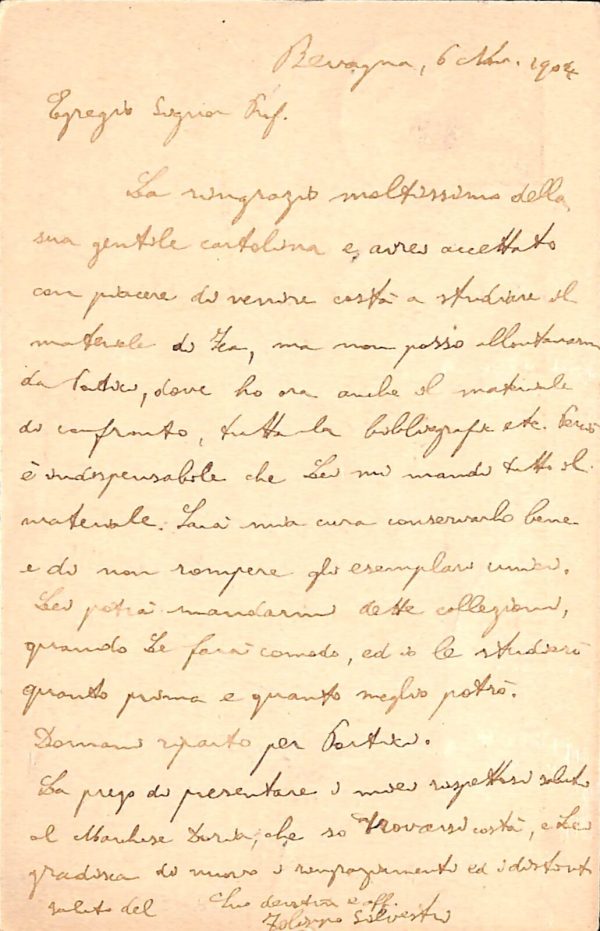 Bevagna, 6 Nov. 1904
Egregio Signor Prof.
La ringrazio moltissimo della
sua gentile cartolina e avrei accettato
con piacere di venire costà a studiare il
materiale di Fea, ma non posso allontanarmi
da Portici, dove ho ora anche il materiale
di confronto, tutta la bibliografia etc. Perciò
è indispensabile che Lei mi mandi tutto il
materiale. Sarà mia cura conservarlo bene
e di non rompere gli esemplari unici.
Lei potrà mandarmi dette collezioni,
quando Le farà comodo, ed io le studierò
quanto prima e quanto meglio potrò.
Domani riparto per Portici.
La prego di presentare i miei rispettosi saluti
al Marchese Doria, che so trovarsi costà, e Lei
gradisca di nuovo i ringraziamenti ed i distinti
saluti del Suo devotmo e aff.
Filippo Silvestri